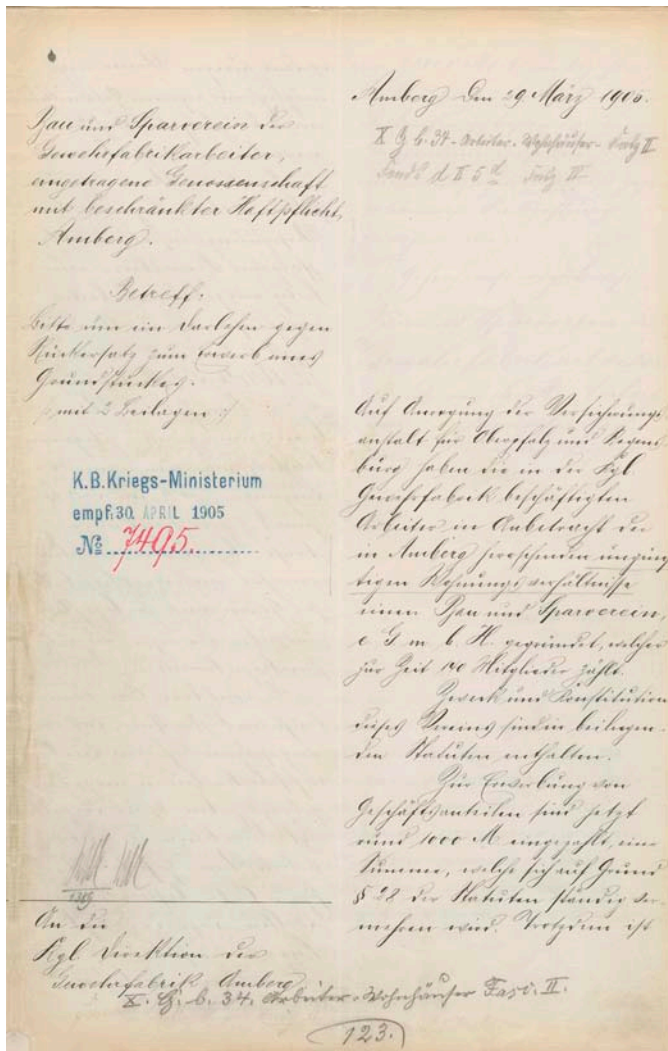 Amberg den 29 März 1905.
X G b. 34 - Arbeiter-Wohnhäuser - II
II 5 IV
Bau und Sparverein der
Gewehrfabrikarbeiter,
eingetragene Genossenschaft
mit beschränkter Haftpflicht,
Amberg.
Betreff:
Bitte um ein Darlehen gegen
Rückersatz zum Erwerb eines
Grundstückes.
mit 2 Beilagen
K.B.Kriegs-Ministerium
empf. 30. APRIL 1905
№ 7495.
Auf Anregung der Versicherungs
anstalt für Oberpfalz und Regens
burg haben die in der Kgl.
Gewehrfabrik beschäftigten
Arbeiter in Anbetracht der
in Amberg herrschenden ungüns
tigen Wohnungsverhältnisse
einen Bau und Sparverein,
e G m b. H. gegründet, welcher
zur Zeit 140 Mitglieder zählt.
Zweck und Konstitution
dieses Vereins sind in beiliegen-
den Statuten enthalten.
Zur Erwerbung von
Geschäftsanteilen sind jetzt
rund 1000 M eingezahlt, eine
Summe, welche sich auf Grund
§ 28 der Statuten ständig ver-
mehren wird. Trotzdem ist
An die
Kgl Direktion der
Gewehrfabrik Amberg
X. G. b. 34. Arbeiter-Wohnhäuser Fasc. II.
123.